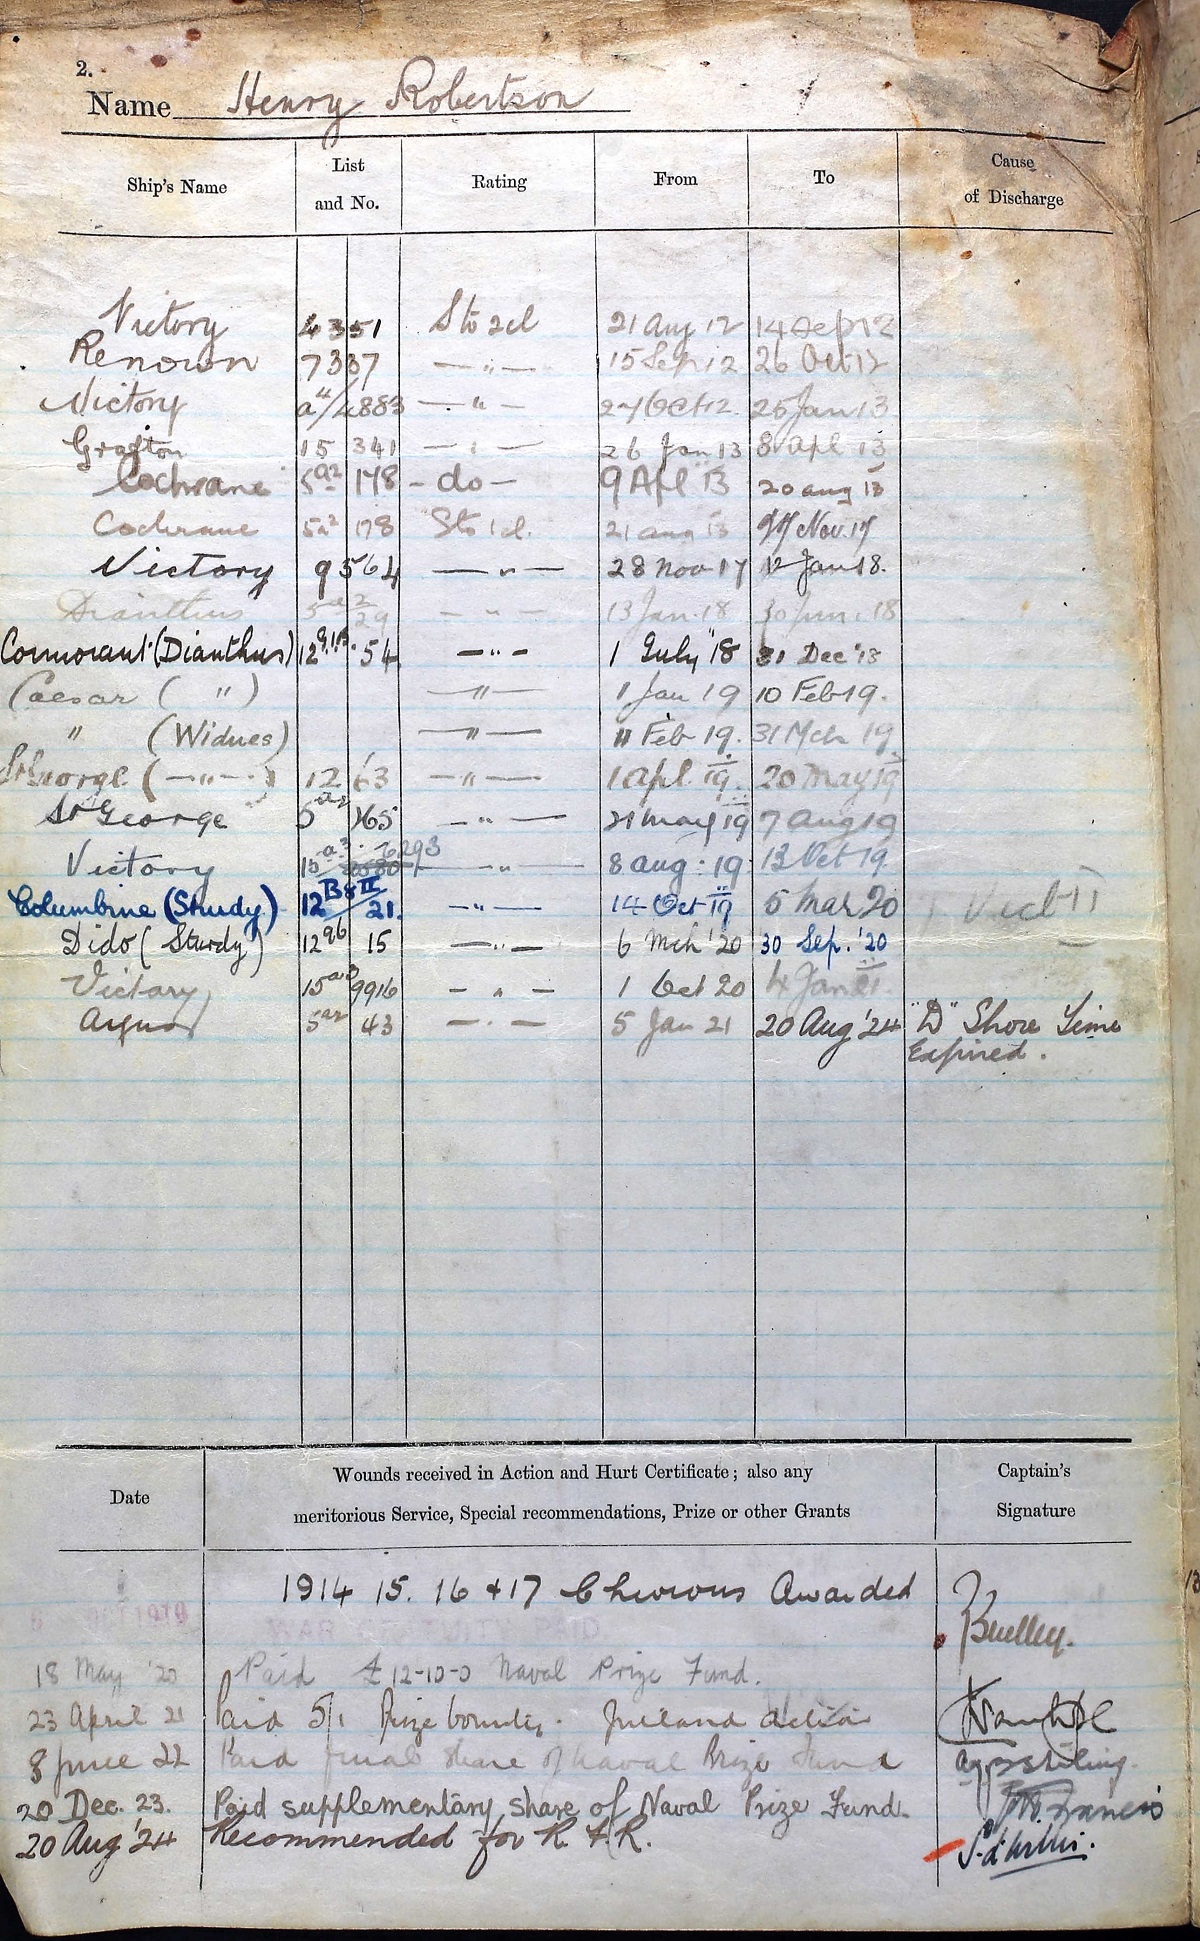 2.
Name Henry Robertson
Ship's Name List and No. Rating From To Cause of Discharge
Victory 4351 Sto 2cl 21 Aug 12 14 Sep 12
Renown 7337 — " — 15 Sep 12 26 Oct 12
Victory 4883 — " — 27 Oct 12 25 Jan 13
Grafton 15 341 — " — 26 Jan 13 8 Apl 13
Cochrane 5a2 178 - do - 9 Apl 13 20 Aug 13
Cochrane 5a2 178 Sto 1cl. 21 Aug 13 27 Nov. 17
Victory 9564 — " — 28 Nov 17 12 Jan 18.
Dianthus 29 — " — 13 Jan. 18 30 Jun. 18
Cormorant (Dianthus) 12 54 — " — 1 July '18 31 Dec '18
Caesar ( " ) — " — 1 Jan 19 10 Feb 19.
" (Widnes) — " — 11 Feb 19. 31 Mch 19
St George ( — " — ) 12 63 — " — 1 Apl 19. 20 May 19
St George 5a2 165 — " — 21 May 19 7 Aug 19
Victory 15a3 6293 — " 8 Aug : 19 13 Oct 19.
Columbine (Sturdy) 12 21. — " — 14 Oct 19 5 Mar 20 Vict II
Dido ( Sturdy) 12 15 — " — 6 Mch '20 30 Sep. '20
Victory 15a3 9916 — " — 1 Oct 20 4 Jan 21.
Argus 5a2 43 — " — 5 Jan 21 20 Aug '24 "D" Shore Time
Expired.
Date Wounds received in Action and Hurt Certificate; also any meritorious Service, Special recommendations, Prize or other Grants Captain's Signature
1914 15. 16 & 17 Chevrons Awarded
OCT 1919 WAR GRATUITY PAID.
18 May '20 Paid £12-10-0 Naval Prize Fund.
23 April 21 Paid 5/1 Prize bounty. Jutland action
8 June 22 Paid final share of Naval Prize Fund
20 Dec. 23. Paid supplementary share of Naval Prize Fund. Francis
20 Aug '24 Recommended for R. F. R.